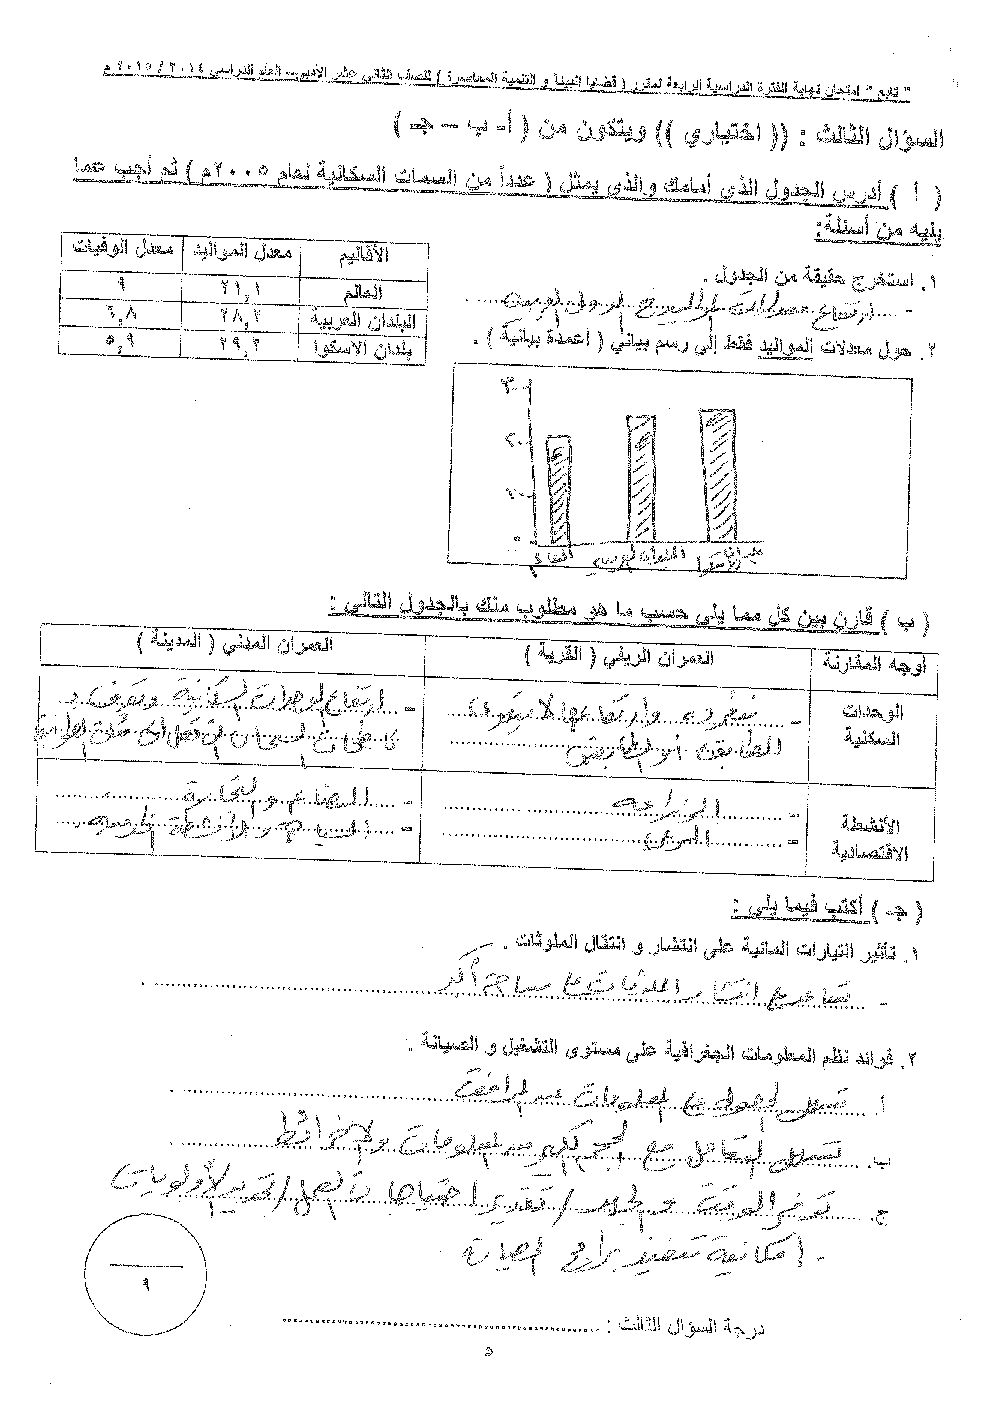 " تابع " امتحان نهاية الفترة الدراسية الرابعة لمقرر ( قضايا البيئة و التنمية المعاصرة ) للصف الثاني عشر الأدبي – العام الدراسي ٢٠١٤ / ٢٠١٥ م
السؤال الثالث : (( اختياري )) ويتكون من ( أ- ب – جـ )
( أ ) أدرس الجدول الذى أمامك والذى يمثل ( عدداً من السمات السكانية لعام ٢٠٠٥م ) ثم أجب عما
يليه من أسئلة:
الأقاليم معدل المواليد معدل الوفيات
العالم ٢١,١ ٩
البلدان العربية ٢٨,٢ ٦,٨
بلدان الاسكوا ٢٩,٣ ٥,٩
١. استخرج حقيقة من الجدول .
- ارتفاع معدلات المواليد في الدول العربية
٢. حول معدلات المواليد فقط إلى رسم بياني ( أعمدة بيانية ) .
٣٠
٢٠
١٠
٠
العالم البلدان العربية بلدان الأسكوا
( ب ) قارن بين كل مما يلى حسب ما هو مطلوب منك بالجدول التالى :
أوجه المقارنة العمران الريفي ( القرية ) العمران المدني ( المدينة )
الوحدات السكنية
- منفردة وارتفاعها لا يتعدى
الطابق أو الطابقين
- ارتفاع الوحدات السكنية
الأنشطة الاقتصادية
- الزراعة
- الرعي
- الصناعة والتجارة
- السياحة والأنشطة الخدمية
( جـ ) أكتب فيما يلى :
١. تأثير التيارات المائية على انتشار و انتقال الملوثات .
- تساعد على انتشار الملوثات على مساحة أكبر
٢. فوائد نظم المعلومات الجغرافية على مستوى التشغيل و الصيانة .
أ. تسهل الحصول على المعلومات عن المرافق
ب. تسهل التعامل مع الحجم الكبير من المعلومات والخرائط
ج. توفر الوقت و الجهد / تقدير احتياجات العمل / تحديد الأولويات
- إمكانية تنفيذ برامج الصيانة
٩
درجة السؤال الثالث :
٥